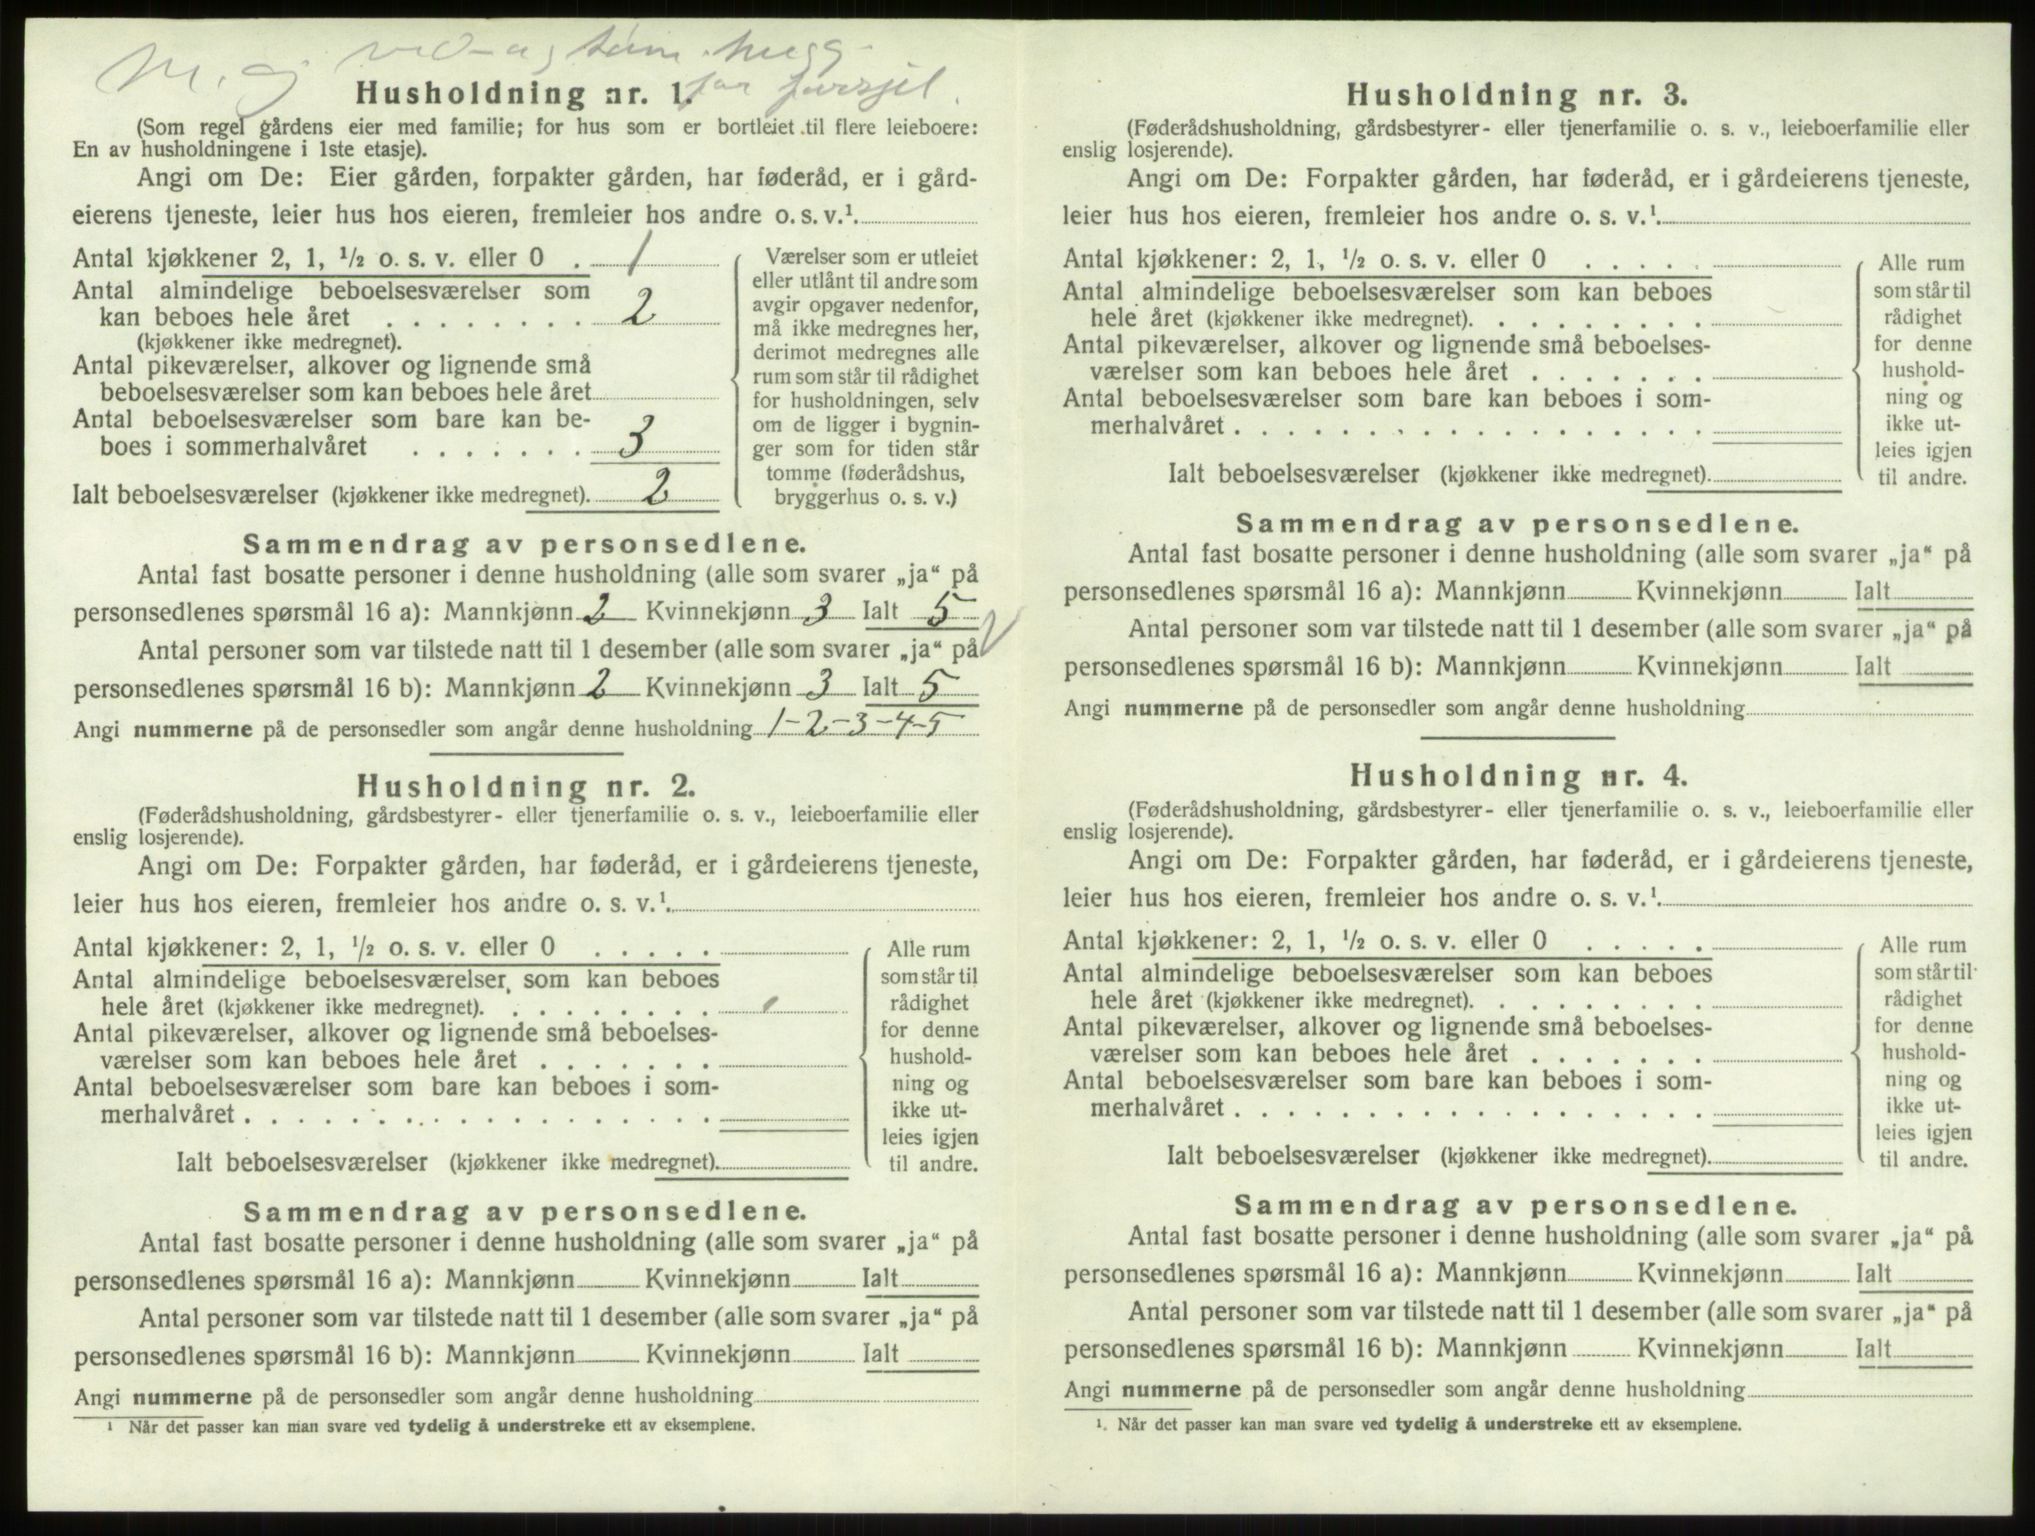 ved- og
Husholdning nr. 1.
(Som regel gårdens eier med familie; for hus som er bortleiet til flere leieboere:
En av husholdningene i 1ste etasje).
Angi om De: Eier gården, forpakter gården, har føderåd, er i gård-
eierens tjeneste, leier hus hos eieren, fremleier hos andre o. s. v.¹.
Antal kjøkkener 2, 1, ½ o. s. v. eller 0 . 1
Antal almindelige beboelsesværelser som
kan beboes hele året . . . . . . . . 2
(kjøkkener ikke medregnet).
Antal pikeværelser, alkover og lignende små
beboelsesværelser som kan beboes hele året
Antal beboelsesværelser som bare kan be-
boes i sommerhalvåret . . . . . . . 3
Ialt beboelsesværelser (kjøkkener ikke medregnet). 2
Værelser som er utleiet
eller utlånt til andre som
avgir opgaver nedenfor,
må ikke medregnes her,
derimot medregnes alle
rum som står til rådighet
for husholdningen, selv
om de ligger i bygnin-
ger som for tiden står
tomme (føderådshus,
bryggerhus o. s. v.)
Sammendrag av personsedlene.
Antal fast bosatte personer i denne husholdning (alle som svarer „ja“ på
personsedlenes spørsmål 16 a): Mannkjønn 2 Kvinnekjønn 3 Ialt 5
Antal personer som var tilstede natt til 1 desember (alle som svarer „ja“ på
personsedlenes spørsmål 16 b): Mannkjønn 2 Kvinnekjønn 3 Ialt 5
Angi nummerne på de personsedler som angår denne husholdning 1-2-3-4-5
Husholdning nr. 2.
(Føderådshusholdning, gårdsbestyrer- eller tjenerfamilie o. s. v., leieboerfamilie eller
enslig losjerende).
Angi om De: Forpakter gården, har føderåd, er i gårdeierens tjeneste,
leier hus hos eieren, fremleier hos andre o. s. v.¹.
Antal kjøkkener: 2, 1, ½ o. s. v. eller 0 . . . . .
Antal almindelige beboelsesværelser som kan beboes
hele året (kjøkkener ikke medregnet). . . . . . . . .
Antal pikeværelser, alkover og lignende små beboelses-
værelser som kan beboes hele året . . . . . . .
Antal beboelsesværelser som bare kan beboes i som-
merhalvåret . . . . . . . . . . . . . . . . . .
Ialt beboelsesværelser (kjøkkener ikke medregnet).
Alle rum
som står til
rådighet
for denne
hushold-
ning og
ikke ut-
leies igjen
til andre.
Sammendrag av personsedlene.
Antal fast bosatte personer i denne husholdning (alle som svarer „ja“ på
personsedlenes spørsmål 16 a): Mannkjønn Kvinnekjønn Ialt
Antal personer som var tilstede natt til 1 desember (alle som svarer „ja“ på
personsedlenes spørsmål 16 b): Mannkjønn Kvinnekjønn Ialt
Angi nummerne på de personsedler som angår denne husholdning
¹ Når det passer kan man svare ved tydelig å understreke ett av eksemplene.
Husholdning nr. 3.
(Føderådshusholdning, gårdsbestyrer- eller tjenerfamilie o. s. v., leieboerfamilie eller
enslig losjerende).
Angi om De: Forpakter gården, har føderåd, er i gårdeierens tjeneste,
leier hus hos eieren, fremleier hos andre o. s. v.¹.
Antal kjøkkener: 2, 1, ½ o. s. v. eller 0 . . . . .
Antal almindelige beboelsesværelser som kan beboes
hele året (kjøkkener ikke medregnet). . . . . . . . .
Antal pikeværelser, alkover og lignende små beboelses-
værelser som kan beboes hele året . . . . . . .
Antal beboelsesværelser som bare kan beboes i som-
merhalvåret . . . . . . . . . . . . . . . . . .
Ialt beboelsesværelser (kjøkkener ikke medregnet).
Alle rum
som står til
rådighet
for denne
hushold-
ning og
ikke ut-
leies igjen
til andre.
Sammendrag av personsedlene.
Antal fast bosatte personer i denne husholdning (alle som svarer „ja“ på
personsedlenes spørsmål 16 a): Mannkjønn Kvinnekjønn Ialt
Antal personer som var tilstede natt til 1 desember (alle som svarer „ja“ på
personsedlenes spørsmål 16 b): Mannkjønn Kvinnekjønn Ialt
Angi nummerne på de personsedler som angår denne husholdning
Husholdning nr. 4.
(Føderådshusholdning, gårdsbestyrer- eller tjenerfamilie o. s. v., leieboerfamilie eller
enslig losjerende).
Angi om De: Forpakter gården, har føderåd, er i gårdeierens tjeneste,
leier hus hos eieren, fremleier hos andre o. s. v.¹.
Antal kjøkkener: 2, 1, ½ o. s. v. eller 0 . . . . .
Antal almindelige beboelsesværelser som kan beboes
hele året (kjøkkener ikke medregnet). . . . . . . . .
Antal pikeværelser, alkover og lignende små beboelses-
værelser som kan beboes hele året . . . . . . .
Antal beboelsesværelser som bare kan beboes i som-
merhalvåret . . . . . . . . . . . . . . . . . .
Ialt beboelsesværelser (kjøkkener ikke medregnet).
Alle rum
som står til
rådighet
for denne
hushold-
ning og
ikke ut-
leies igjen
til andre.
Sammendrag av personsedlene.
Antal fast bosatte personer i denne husholdning (alle som svarer „ja“ på
personsedlenes spørsmål 16 a): Mannkjønn Kvinnekjønn Ialt
Antal personer som var tilstede natt til 1 desember (alle som svarer „ja“ på
personsedlenes spørsmål 16 b): Mannkjønn Kvinnekjønn Ialt
Angi nummerne på de personsedler som angår denne husholdning
¹. Når det passer kan man svare ved tydelig å understreke ett av eksemplene.